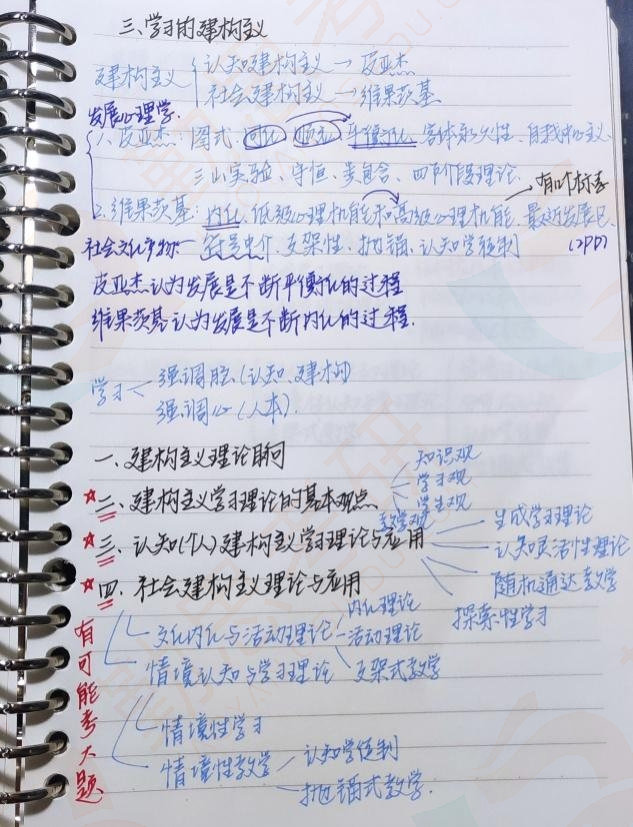 三、学习的建构主义
建构主义 认知建构主义 → 皮亚杰
社会建构主义 → 维果茨基
发展心理学.
1. 皮亚杰：图式 同化 顺应 平衡化. 客体永久性. 自我中心主义
三山实验、守恒. 类包含、四阶段理论.
有时标考
2. 维果茨基：内化. 低级心理机能和高级心理机能. 最近发展区
(ZPD)
社会文化事物— 符号中介. 支架性. 抛锚. 认知学徒制
皮亚杰认为发展是不断平衡化的过程
维果茨基认为发展是不断内化的过程.
学习 强调脑(认知、建构)
强调心(人本).
一、建构主义理论取向
知识观
学习观
学生观
教学观
二、建构主义学习理论的基本观点
三、认知(个人)建构主义学习理论与应用
生成学习理论
认知灵活性理论
随机通达教学
探索性学习
四、社会建构主义理论与应用
文化内化与活动理论
内化理论
活动理论
支架式教学
情境认知与学习理论
情境性学习
情境性教学
认知学徒制
抛锚式教学.
有可能考大题